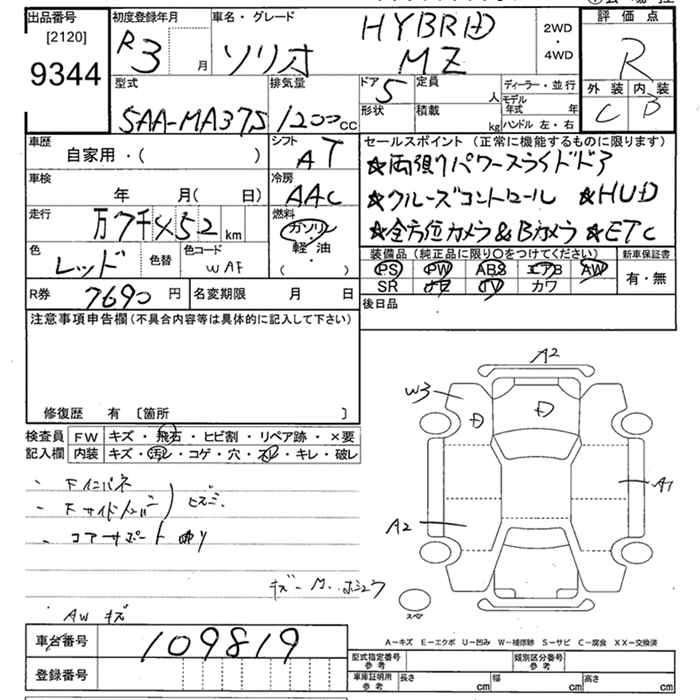 出品番号 初度登録年月 車名・グレード 評価点
[2120] R3 月 ソリオ HYBRID MZ 2WD・4WD R
9344 外装 内装
型式 排気量 ドア 5 定員 人 ディーラー・並行 C B
5AA-MA37S 1200cc 形状 積載 kg モデル年式 年
ハンドル 左・右
車歴 シフト セールスポイント (正常に機能するものに限ります)
自家用・( ) AT ★両張りパワースライドドア
車検 冷房 ★クルーズコントロール ★HUD
年 月( 日) AAC ★全方位カメラ&Bカメラ ★ETC
走行 燃料
万7千452km ガソリン
軽・油
( ・ )
色 色替 色コード 装備品 (純正品に限り○をつけてください) 新車保証書
レッド WAF PS PW ABS エアB AW 有・無
SR ナビ TV カワ
R券 7690円 名変期限 月 日 後日品
注意事項申告欄(不具合内容等は具体的に記入して下さい)
修復歴 有 [箇所 ]
A2
W3
D D
A1
A2
検査員 FW キズ・飛石・ヒビ割・リペア跡・×要
記入欄 内装 キズ・汚れ・コゲ・穴・スレ・キレ・破レ
、Fインパネ
、Fサイドメンバー)ヒズミ.
、コアーサポート曲り
AW キズ
スペア
車台番号 109819
登録番号
A-キズ E-エクボ U-凹み W-補修跡 S-サビ C-腐食 XX-交換済
型式指定番号 参考 類別区分番号 参考
車庫証明 参考 長さ cm 幅 cm 高さ cm